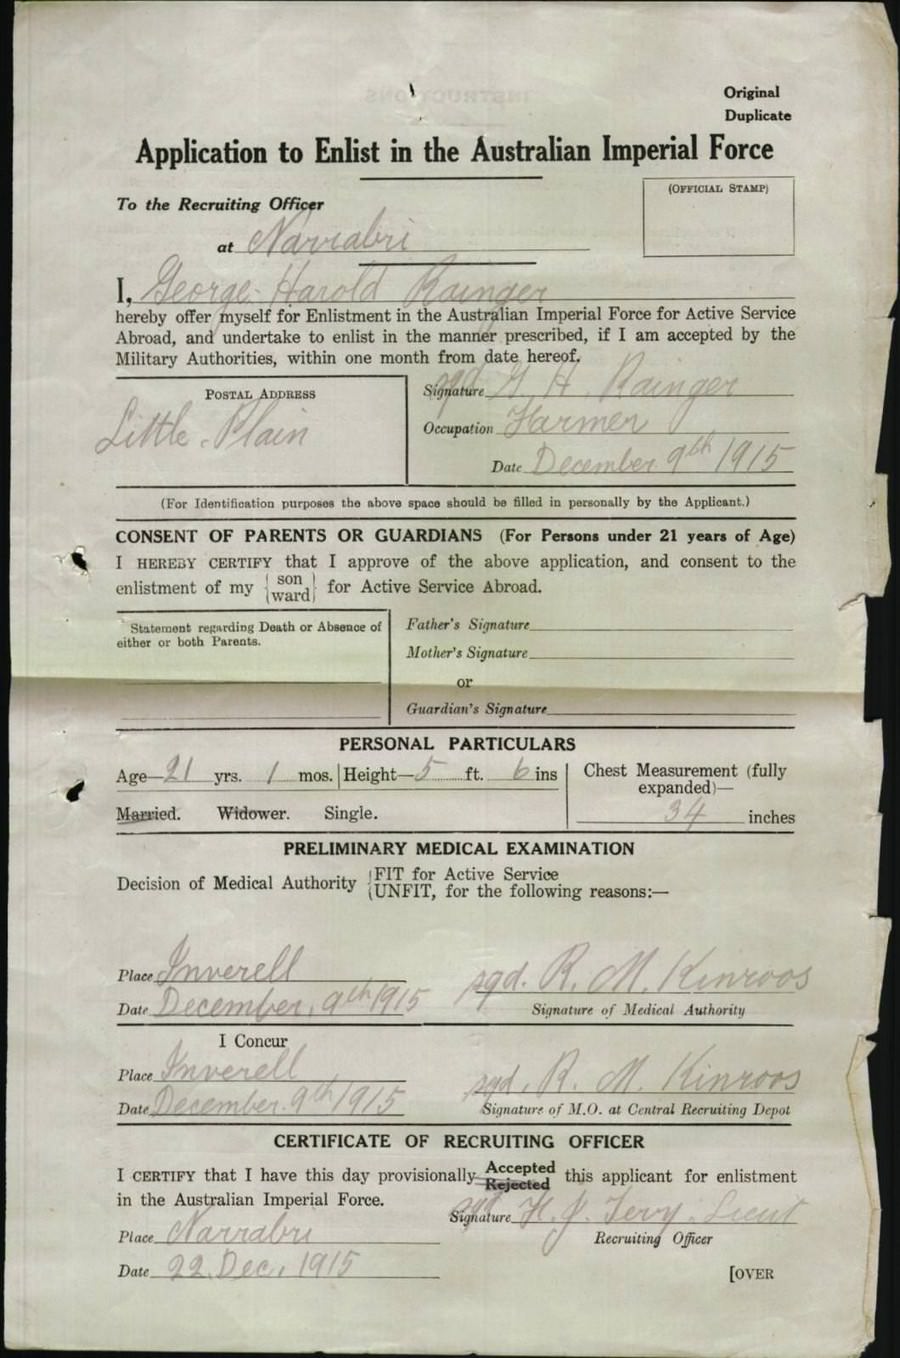 Original
Duplicate
Application to Enlist in the Australian Imperial Force
(OFFICIAL STAMP)
To the Recruiting Officer
at Narrabri
I, George Harold Rainger
hereby offer myself for Enlistment in the Australian Imperial Force for Active Service
Abroad, and undertake to enlist in the manner prescribed, if I am accepted by the
Military Authorities, within one month from date hereof.
POSTAL ADDRESS
Little Plain
Signature sgd G. H. Rainger
Occupation Farmer
Date December 9th 1915
(For Identification purposes the above space should be filled in personally by the Applicant.)
CONSENT OF PARENTS OR GUARDIANS (For Persons under 21 years of Age)
I HEREBY CERTIFY that I approve of the above application, and consent to the
enlistment of my { son ward } for Active Service Abroad.
Statement regarding Death or Absence of
either or both Parents.
Father's Signature
Mother's Signature
or
Guardian's Signature
PERSONAL PARTICULARS
Age—21 yrs. 1 mos. Height—5 ft. 6 ins
Chest Measurement (fully
expanded)—
34 inches
Married. Widower. Single.
PRELIMINARY MEDICAL EXAMINATION
Decision of Medical Authority { FIT for Active Service
UNFIT, for the following reasons:—
Place Inverell
Date December 9th 1915
sgd. R. M. Kinroos
Signature of Medical Authority
I Concur
Place Inverell
Date December 9th 1915
sgd. R. M. Kinroos
Signature of M.O. at Central Recruiting Depot
CERTIFICATE OF RECRUITING OFFICER
I CERTIFY that I have this day provisionally Accepted Rejected this applicant for enlistment
in the Australian Imperial Force.
Signature sgd H. J. Lieut
Recruiting Officer
Place Narrabri
Date 22 Dec. 1915
[OVER